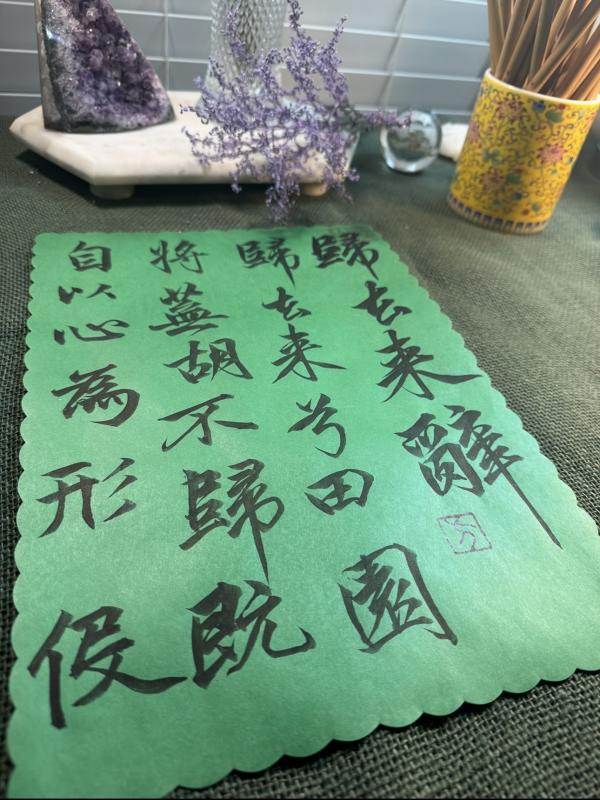 歸去来辭
歸去来兮田園
將蕪胡不歸既
自以心為形伇